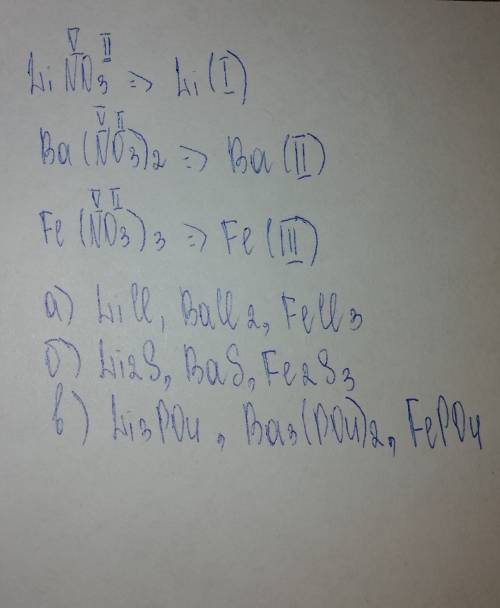 V II
LiNO3 => Li(I)
V II
Ba(NO3)2 => Ba(II)
V II
Fe(NO3)3 => Fe(III)
а) LiCl, BaCl2, FeCl3
б) Li2S, BaS, Fe2S3
в) Li3PO4, Ba3(PO4)2, FePO4